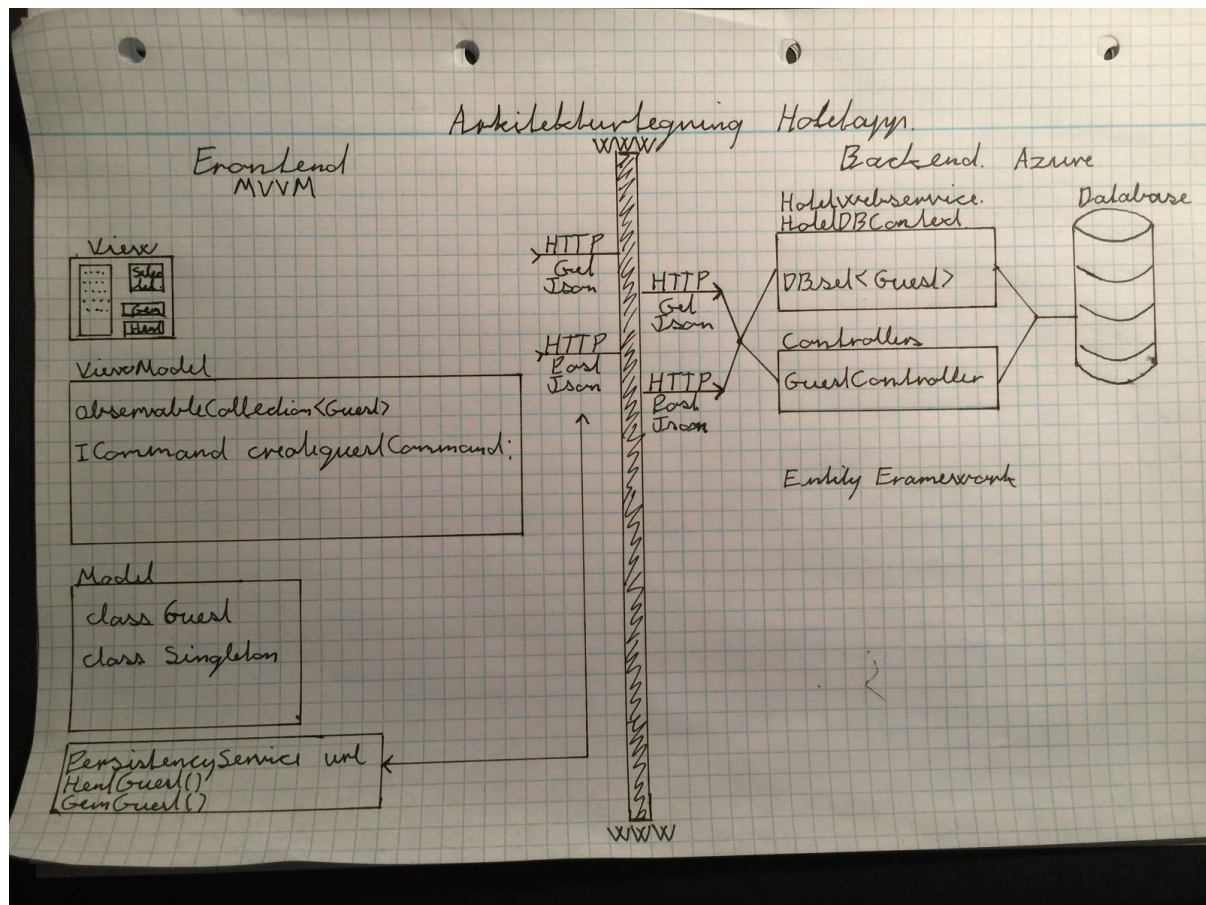 Arkitekturtegning Hotelapp.
WWW
Frontend
MVVM
Backend. Azure
View
Selec
ted
Gem
Hent
ViewModel
observableCollection<Guest>
ICommand createguestCommand;
Model
class Guest
class Singleton
PersistencyService url
HentGuest()
GemGuest()
HTTP
Get
Json
HTTP
Post
Json
HTTP
Get
Json
HTTP
Post
Json
Hotelwebservice.
HotelDBContext.
DBset<Guest>
Controllers
GuestController
Entity Framework
Database
WWW